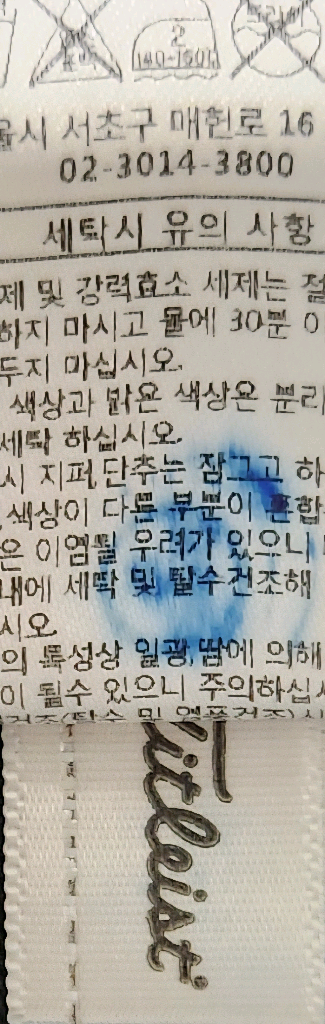 2
140-160℃
울시 서초구 매헌로 16
02-3014-3800
세탁시 유의 사항
제 및 강력효소 세제는 절
하지 마시고 물에 30분 이
두지 마십시오.
색상과 밝은 색상은 분리
세탁 하십시오.
시 지퍼,단추는 잠그고 하
색상이 다른 부분이 혼합
은 이염될 우려가 있으니
내에 세탁 및 탈수건조해
시오.
의 특성상 일광,땀에 의해
이 될수 있으니 주의하십시
건조(탈수 및
Titleist